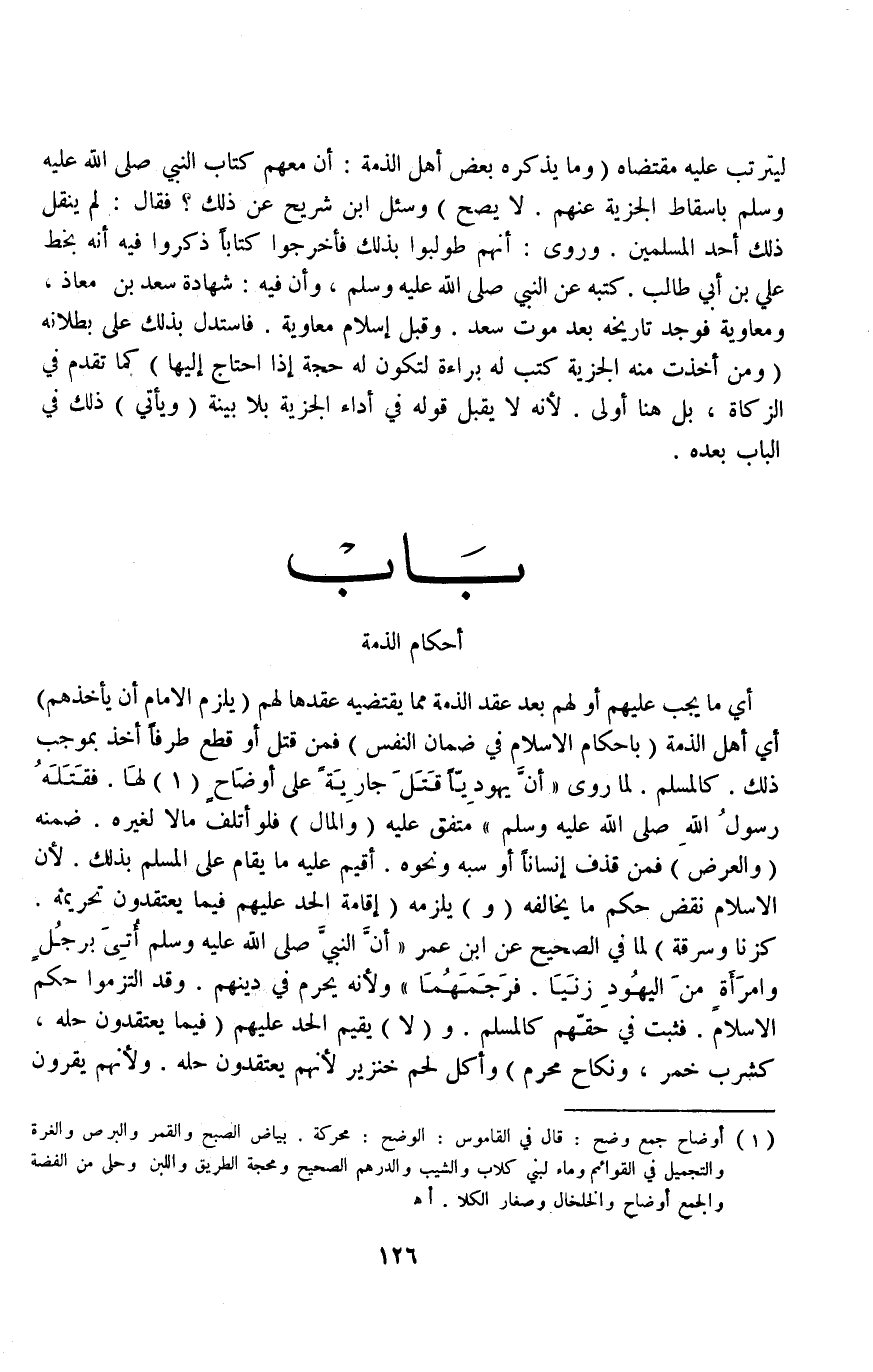 ليترتب عليه مقتضاه ( وما يذكره بعض أهل الذمة : أن معهم كتاب النبي صلى الله عليه
وسلم باسقاط الجزية عنهم . لا يصح ) وسئل ابن شريح عن ذلك ؟ فقال : لم ينقل
ذلك أحد المسلمين . وروى : أنهم طولبوا بذلك فأخرجوا كتاباً ذكروا فيه أنه بخط
علي بن أبي طالب . كتبه عن النبي صلى الله عليه وسلم ، وأن فيه : شهادة سعد بن معاذ ،
ومعاوية فوجد تاريخه بعد موت سعد . وقبل إسلام معاوية . فاستدل بذلك على بطلانه
( ومن أخذت منه الجزية كتب له براءة لتكون له حجة إذا احتاج إليها ) كما تقدم في
الزكاة ، بل هنا أولى . لأنه لا يقبل قوله في أداء الجزية بلا بينة ( ويأتي ) ذلك في
الباب بعده .
بَابْ
أحكام الذمة
أي ما يجب عليهم أو لهم بعد عقد الذمة مما يقتضيه عقدها لهم ( يلزم الامام أن يأخذهم)
أي أهل الذمة ( باحكام الاسلام في ضمان النفس ) فمن قتل أو قطع طرفاً أخذ بموجب
ذلك . كالمسلم . لما روى « أنَّ يهودِيّاً قَتَلَ جارِيَةً على أوضَاحٍ ( ١ ) لهَا . فقَتَلَهُ
رسولُ اللهِ صلى الله عليه وسلم » متفق عليه ( والمال ) فلو أتلف مالا لغيره . ضمنه
( والعرض ) فمن قذف إنساناً أو سبه ونحوه . أقيم عليه ما يقام على المسلم بذلك . لأن
الاسلام نقض حكم ما يخالفه ( و ) يلزمه ( إقامة الحد عليهم فيما يعتقدون تحريمه .
كزنا وسرقة ) لما في الصحيح عن ابن عمر « أنَّ النبيَّ صلى الله عليه وسلم أُتىَ برجُلٍ
وامرَأَةٍ منَ اليهُودِ زنَيَا . فرَجَمَهُمَا » ولأنه يحرم في دينهم . وقد التزموا حكم
الاسلام . فثبت في حقّهم كالمسلم . و ( لا ) يقيم الحد عليهم ( فيما يعتقدون حله ،
كشرب خمر ، ونكاح محرم ) وأكل لحم خنزير لأنهم يعتقدون حله . ولأنهم يقرون
( ١ ) أوضاح جمع وضح : قال في القاموس : الوضح : محركة . بياض الصبح والقمر والبرص والغرة
والتجميل في القوائم وماء لبني كلاب والشيب والدرهم الصحيح ومحجة الطريق واللبن وحلى من الفضة
والجمع أوضاح والخلخال وصغار الكلا . أ ه
١٢٦